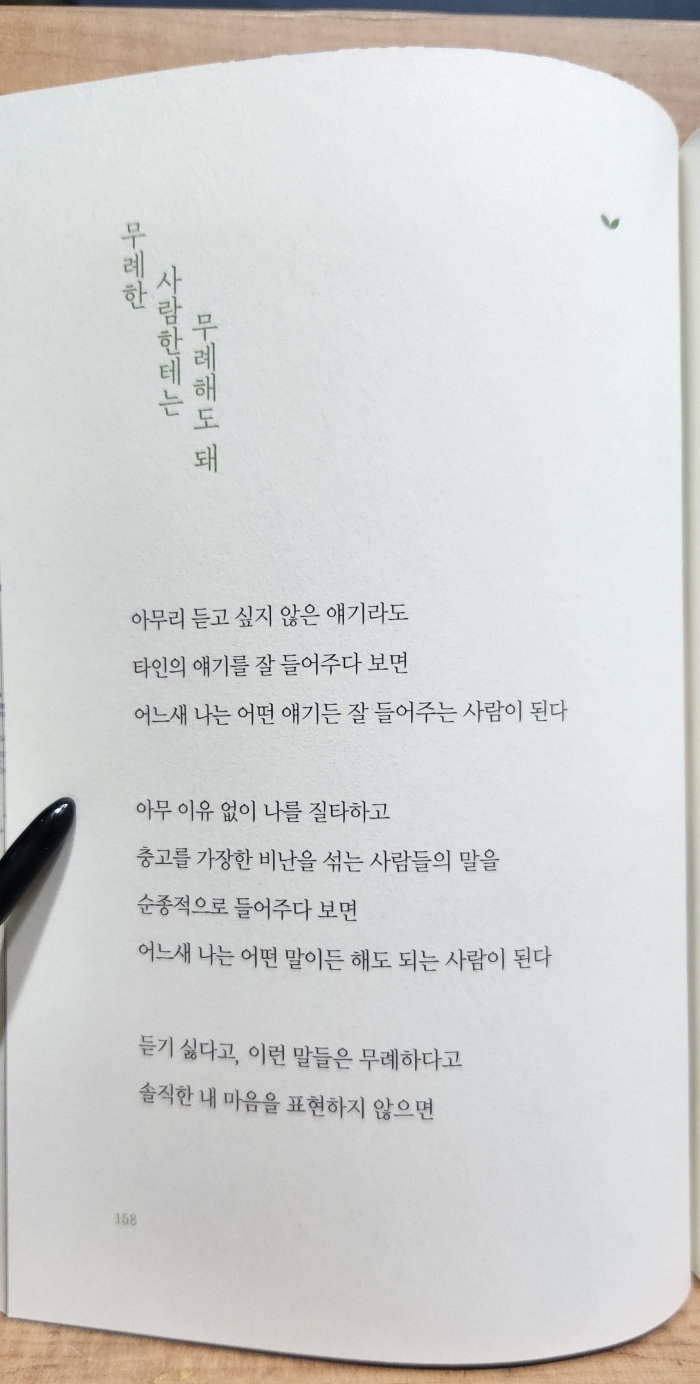 무례한
사람한테는
무례해도 돼
아무리 듣고 싶지 않은 얘기라도
타인의 얘기를 잘 들어주다 보면
어느새 나는 어떤 얘기든 잘 들어주는 사람이 된다
아무 이유 없이 나를 질타하고
충고를 가장한 비난을 섞는 사람들의 말을
순종적으로 들어주다 보면
어느새 나는 어떤 말이든 해도 되는 사람이 된다
듣기 싫다고, 이런 말들은 무례하다고
솔직한 내 마음을 표현하지 않으면
158